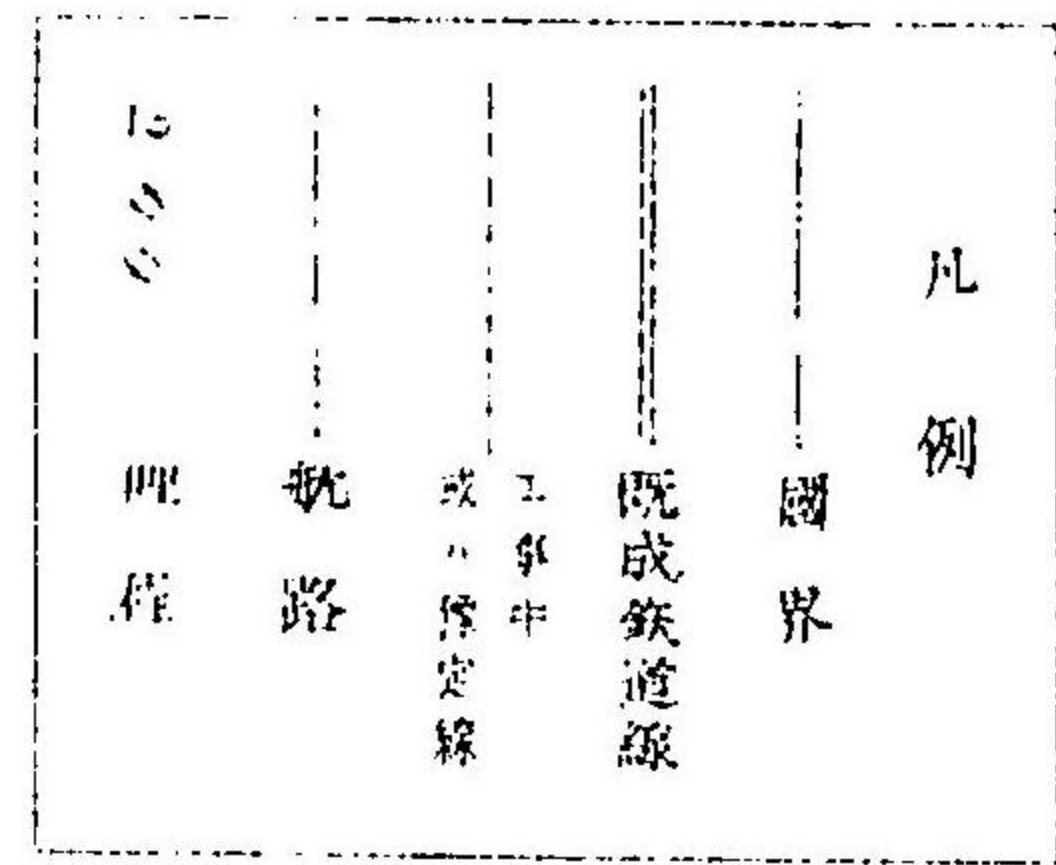 凡例
國界
既成鉄道線
工事中
或ハ豫定線
航路
哩程